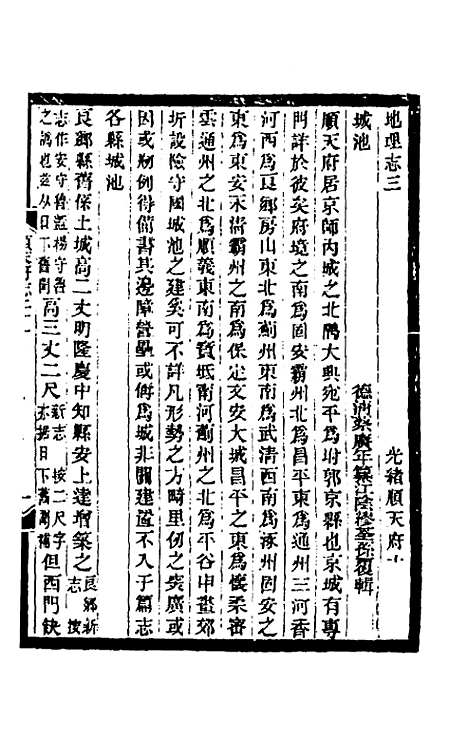 地理志三 光緒順天府十
城池 德清蔡賡年纂江陰繆荃孫復輯
順天府居京師內城之北隅大興宛平爲坿郭京縣也京城有專
門詳於彼矣府境之南爲固安霸州北爲昌平東爲通州三河香
河西爲良鄉房山東北爲薊州東南爲武清西南爲涿州固安之
東爲東安永淸霸州之南爲保定文安大城昌平之東爲懷柔密
雲通州之北爲順義東南爲寶坻甯河薊州之北爲平谷申畫郊
圻設險守國城池之建奚可不詳凡形勢之方畸里例之袤廣或
因或刱例得備書其邊障營壘或併爲城非關建置不入于篇志
各縣城池
良鄉縣舊係土城高二丈明隆慶中知縣安上達增築之良鄉新志 按
志作安守魯証楊守魯之譌也並从日下舊聞高三丈二尺新志 按二尺字志據日下舊聞補但西門缺